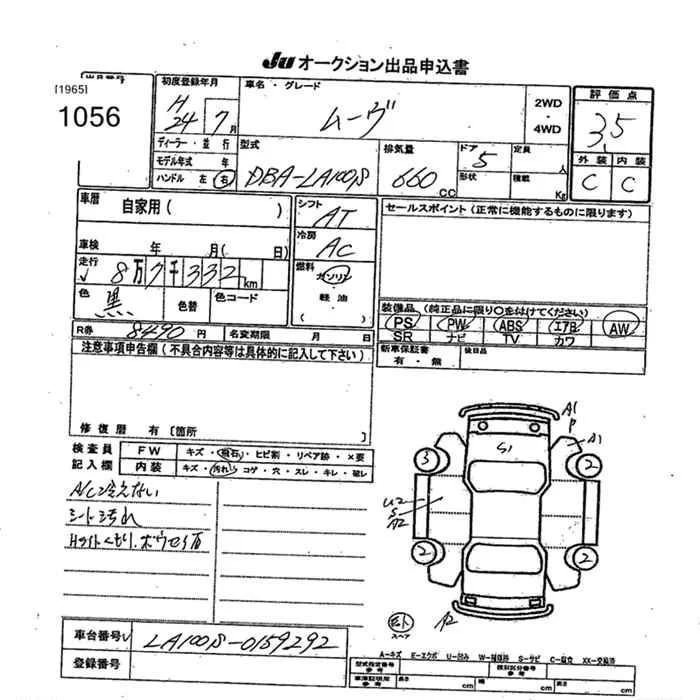 JU オークション出品申込書
出品番号
[1965]
1056
初度登録年月
H24 7月
車名・グレード
ムーヴ
2WD
・
4WD
評価点
3.5
外装 内装
C C
ディーラー・並行
モデル年式 年
ハンドル 左 右
型式
DBA-LA100S
排気量
660 CC
ドア 5
形状
定員 人
積載 Kg
車歴 自家用( )
車検 年 月( 日)
走行 8万7千332km
色 黒 色替 色コード
シフト
AT
冷房
AC
燃料
ガソリン
・
軽油
( )
セールスポイント(正常に機能するものに限ります)
装備品(純正品に限り○を付けてください)
PS PW ABS エアB AW
SR ナビ TV カワ
R券 8490円 名変期限 月 日
新車保証書
有・無
後日品
注意事項申告欄(不具合内容等は具体的に記入して下さい)
修復歴 有〔箇所 〕
検査員
記入欄
FW キズ・飛石・ヒビ割・リペア跡・×要
内装 キズ・汚れ・コゲ・穴・スレ・キレ・破レ
A/C冷えない
シート汚れ
Hライトくもり.
A1
P
A1
S1
3
2
U2
S
A2
2
2
A2
スペア
車台番号 LA100S-0159292
登録番号
A-キズ E-エクボ U-凹み W-補修跡 S-サビ C-腐食 XX-交換済
型式指定番号
参考
類別区分番号
参考
車庫証明用
参考
長さ cm 幅 cm 高さ cm